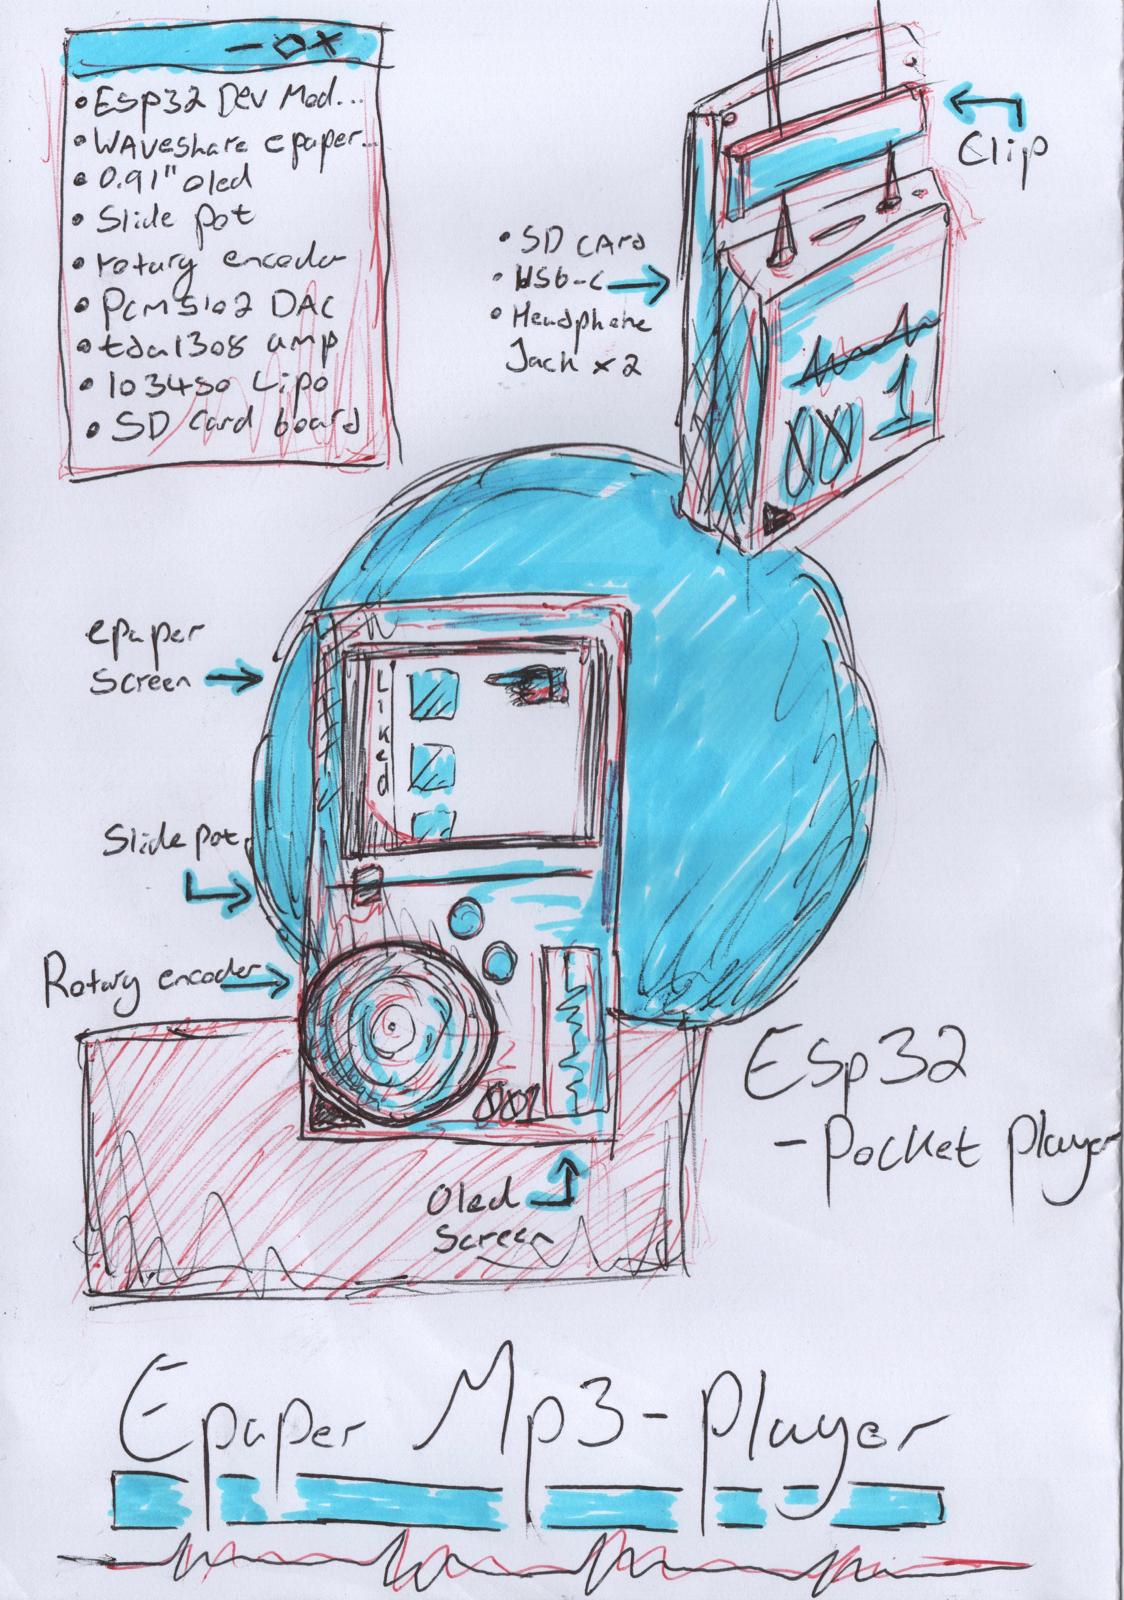 - o x
• Esp32 Dev Mod...
• Waveshare epaper..
• 0.91" oled
• Slide pot
• rotary encoder
• Pcm5102 DAC
• tda1308 amp
• 103450 Lipo
• SD Card board
Clip
• SD CArd
• USb-C
• Headphone
Jack x2
001
epaper
Screen
Liked
Slide pot
Rotary encoder
001
Oled
Screen
Esp32
- Pocket player
Epaper Mp3-player